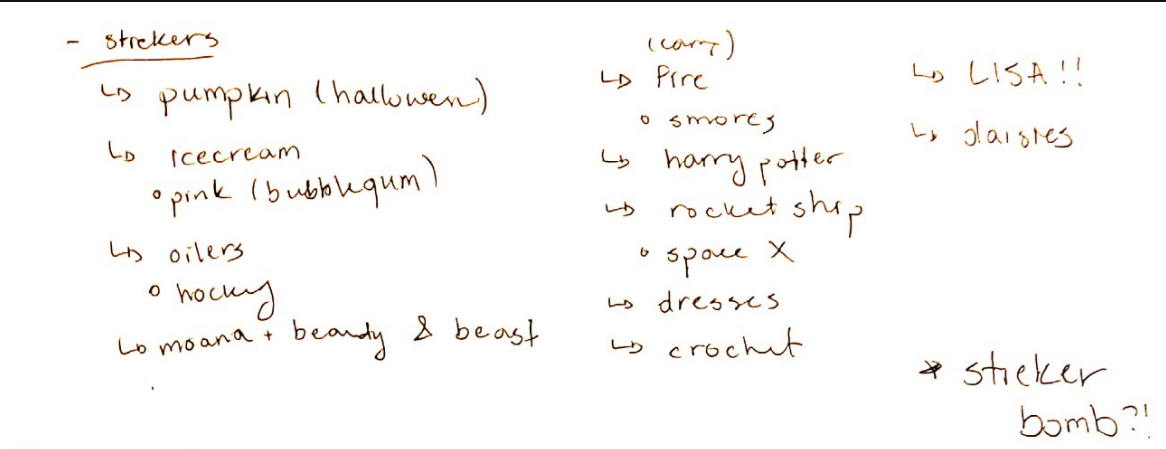 - stickers
↳ pumpkin (hallowen)
↳ icecream
∘ pink (bubblegum)
↳ oilers
∘ hocky
↳ moana + beauty & beast
(camp)
↳ fire
∘ smores
↳ harry potter
↳ rocket ship
∘ space X
↳ dresses
↳ crochet
↳ LISA!!
↳ daisies
* sticker
bomb?!